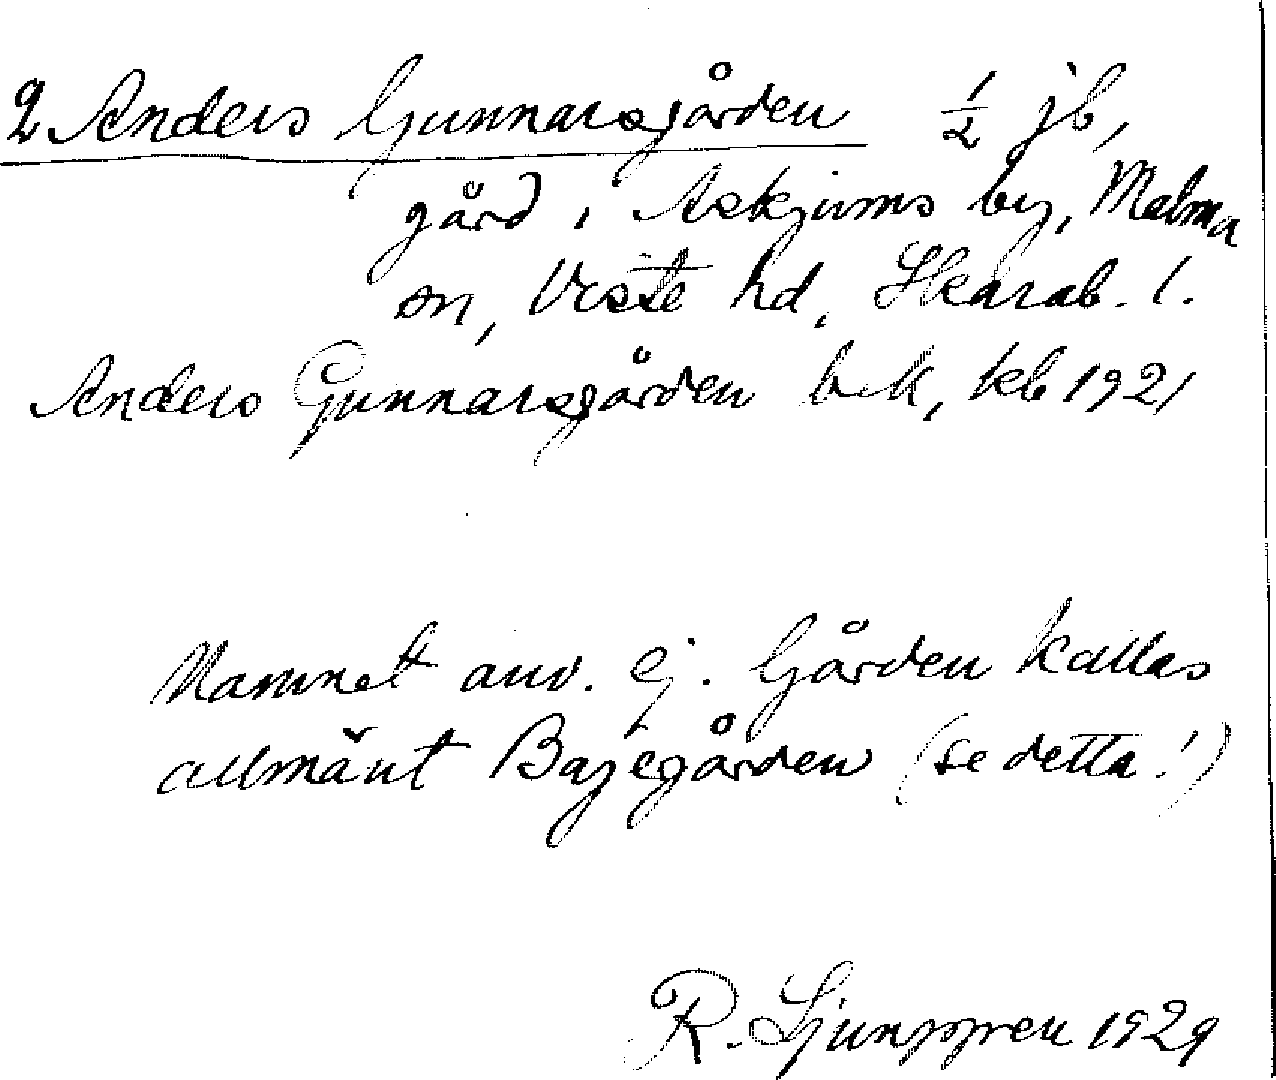 2 Anders Gunnarsgården ½ jb,
gård i Askjums by, Malma
sn, Viste hd, Skarab. l.
Anders Gunnarsgården bek, kb 1921
Namnet anv. ej. Gården kallas
allmänt Bajegården (se detta!)
R. Ljunggren 1929